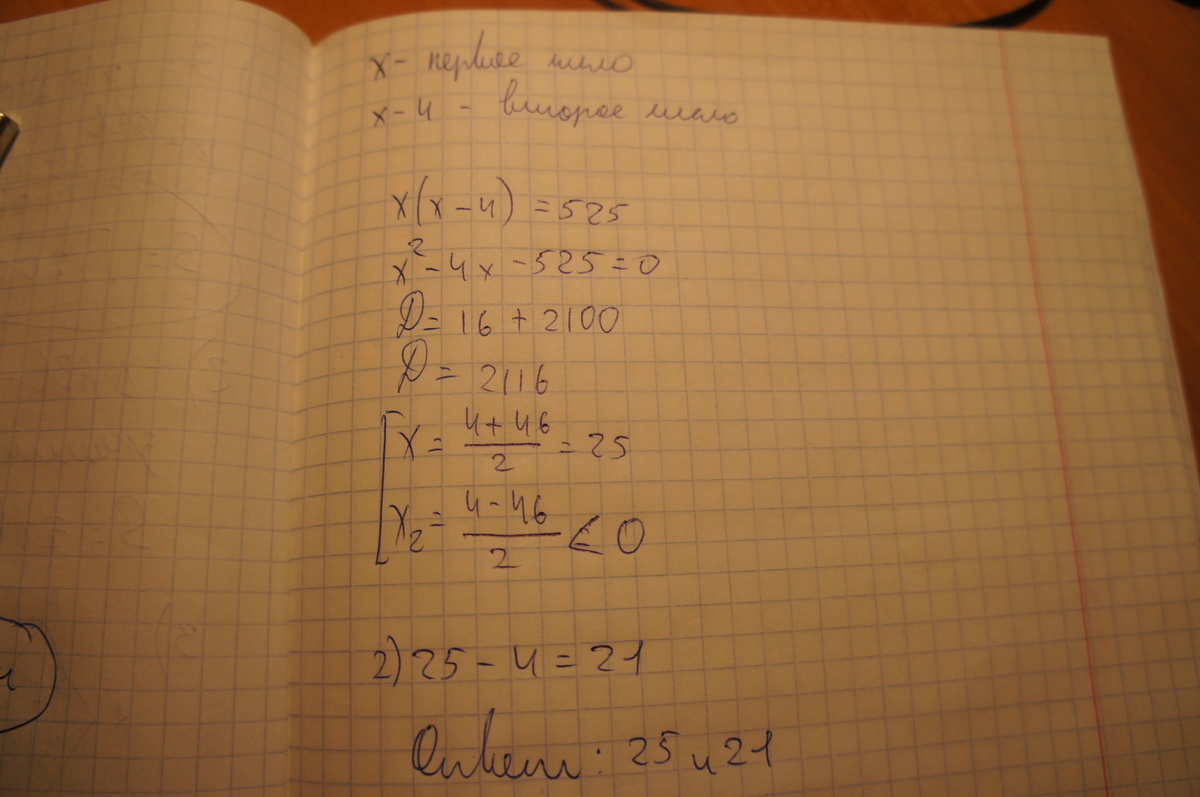 x - первое число
x - 4 - второе число
x(x - 4) = 525
x² - 4x - 525 = 0
D = 16 + 2100
D = 2116
[x = (4 + 46)/2 = 25
x₂ = (4 - 46)/2 < 0
2) 25 - 4 = 21
Ответ: 25 и 21